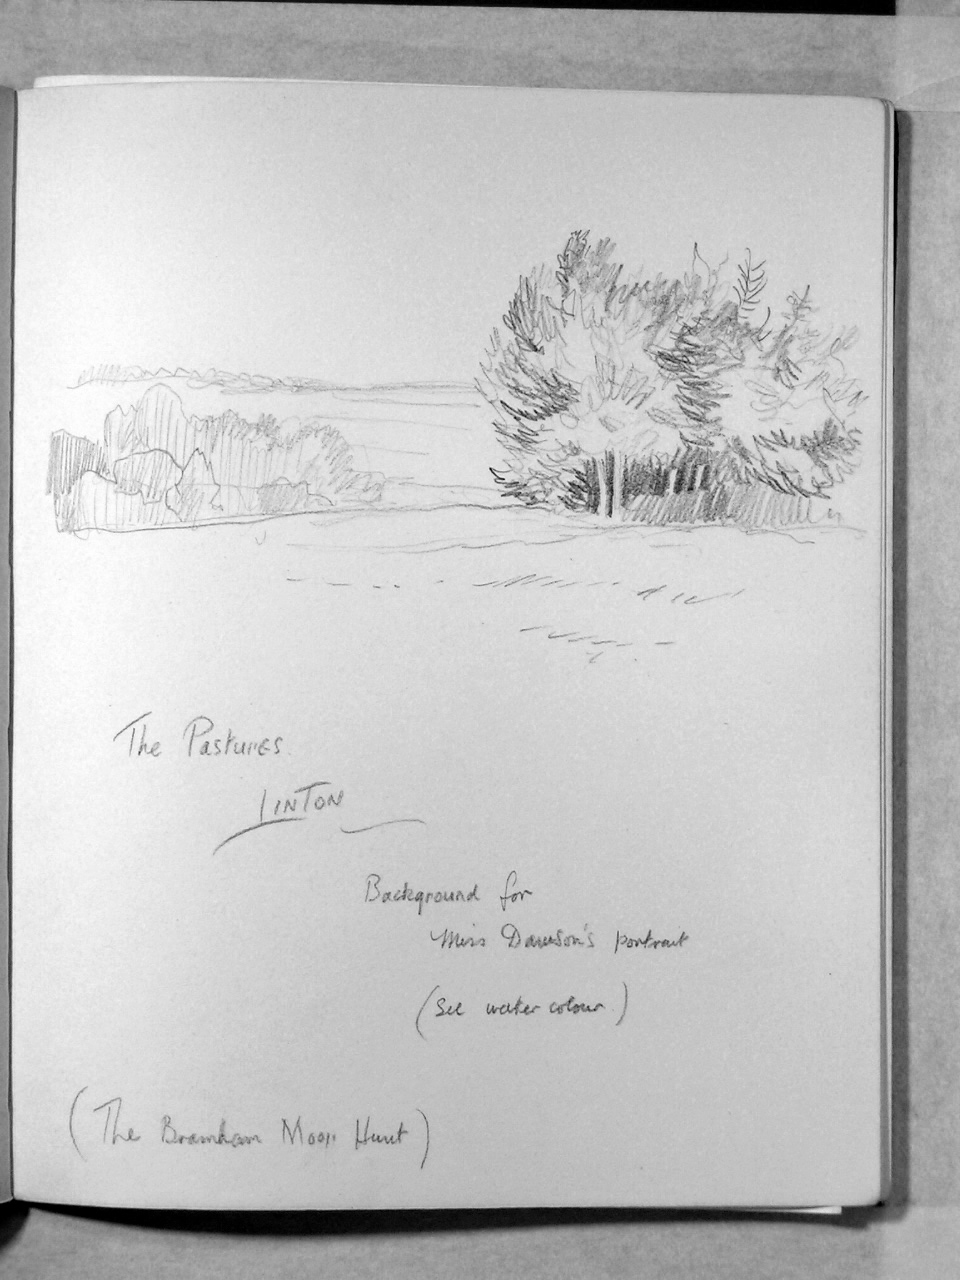 The Pastures.
LINTON
Background for
Miss Dawson's portrait
(See water colour)
(The Bramham Moor Hunt)